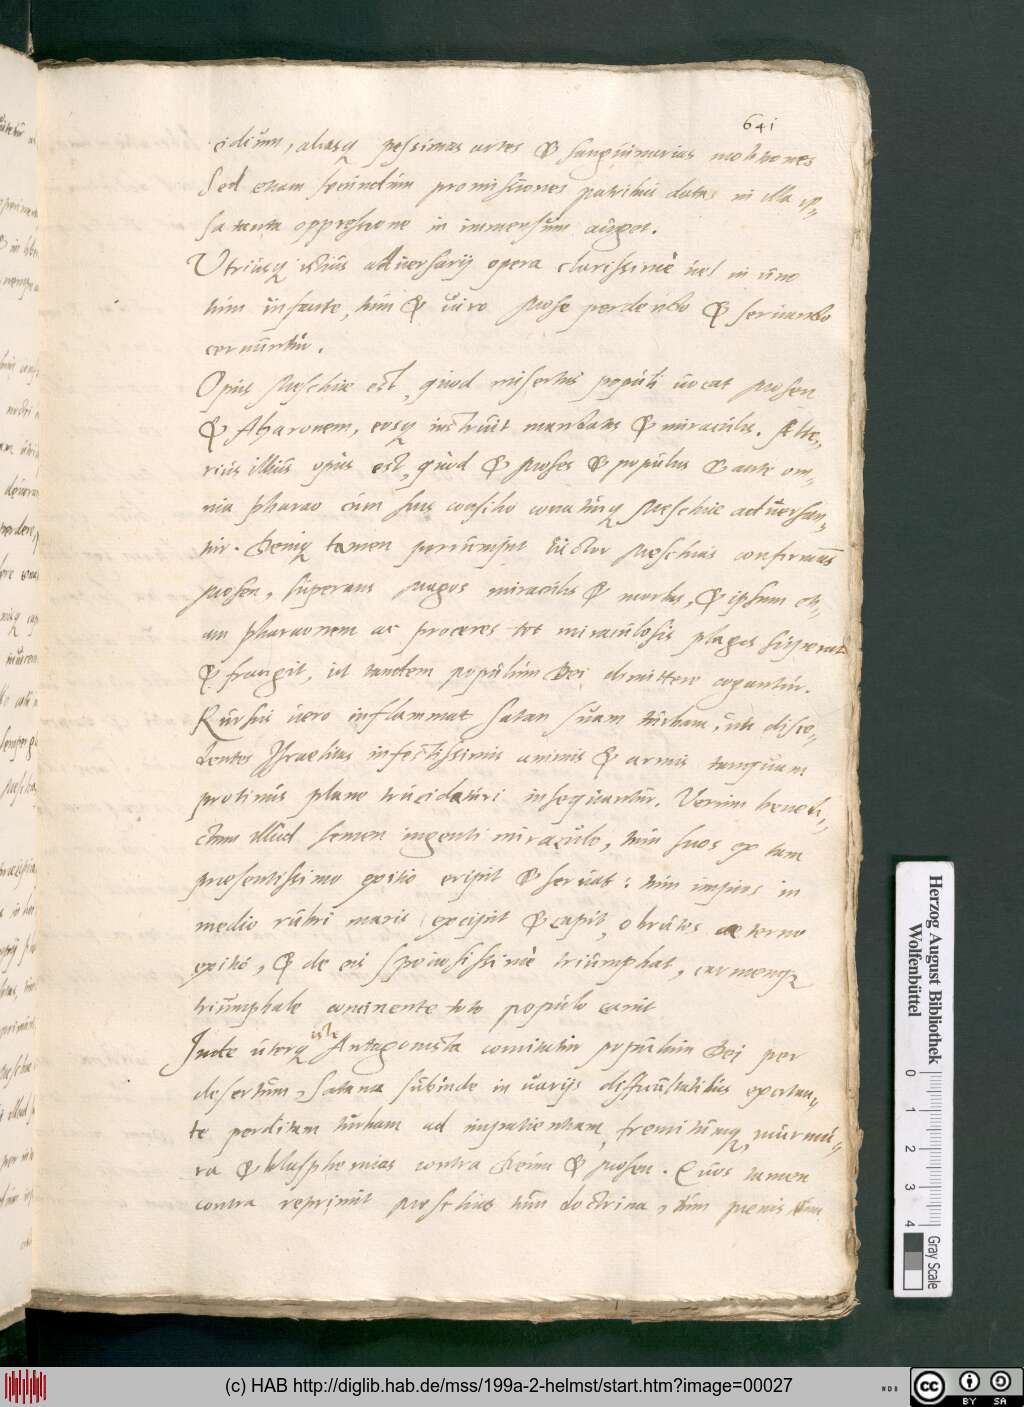 641
cidium, aliasq pessimas artes & sanguinarias molitiones
Sed etiam secundum promissiones patribus datas in illa ip„
sa tanta oppressione in immensum auget.
Utriusq istius adversarij opera clarissimè vel in uno
tum infante, tum & viro Mose perdendo & servando
cernuntur.
Opus Meschiae est, quod misertus populi vocat Mosen
& Aharonem, eosq instruit mandatis & miraculis. Alte„
rius illius opus est, quod & Moses & populus & ante om„
nia Pharao cum suis consilio conatuq Meschiae adversan„
tur. Deniq tamen perrumpit victor Meschias confirmans
Mosen, superans Magos miraculis & morbis, & ipsum et„
iam Pharaonem ac proceres tot miraculosis plagis superat
& frangit, ut tandem populum Dei dimittere cogantur.
Rursus vero inflammat Satan suam turbam, uti disce„
dentes Israelitas infestissimis animis & armis tanquam
protinus plane trucidaturi insequantur. Verum benedi„
ctum illud semen ingenti miraculo, tum suos ex tam
praesentissimo exitio eripit & servat: tum impios in
medio rubri maris excipit & capit, obrutos aeterno
exitio, & de eis speciosissimè triumphat, carmenq
triumphale concinente toto populo canit
Inde uterq iste Antagonista comitatur populum Dei per
desertum, Satana subinde in varijs difficultatibus exertan„
te perditam turbam ad impatientiam, fremitumq, murmu„
ra & blasphemias contra Deum & Mosen. Quos tamen
contra reprimit Meschias tum doctrina, tum poenis tum
Herzog August Bibliothek
Wolfenbüttel
0 1 2 3 4
Gray Scale
(c) HAB http://diglib.hab.de/mss/199a-2-helmst/start.htm?image=00027
cc BY SA